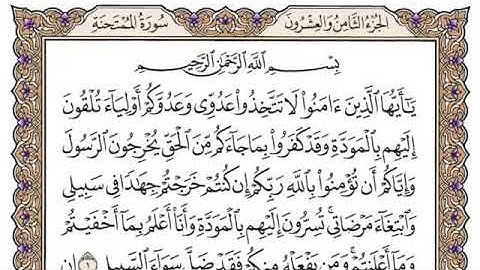 سُورَةُ المُمْتَحنَةِ
الجُزْءُ الثَّامِنُ وَالعِشْرُونَ
بِسْمِ اللَّهِ الرَّحْمَٰنِ الرَّحِيمِ
يَٰٓأَيُّهَا الَّذِينَ ءَامَنُوا لَا تَتَّخِذُوا عَدُوِّى وَعَدُوَّكُمْ أَوْلِيَآءَ تُلْقُونَ
إِلَيْهِم بِالْمَوَدَّةِ وَقَدْ كَفَرُوا بِمَا جَآءَكُم مِّنَ الْحَقِّ يُخْرِجُونَ الرَّسُولَ
وَإِيَّاكُمْ أَن تُؤْمِنُوا بِاللَّهِ رَبِّكُمْ إِن كُنتُمْ خَرَجْتُمْ جِهَٰدًا فِى سَبِيلِى
وَابْتِغَآءَ مَرْضَاتِى تُسِرُّونَ إِلَيْهِم بِالْمَوَدَّةِ وَأَنَا۠ أَعْلَمُ بِمَآ أَخْفَيْتُمْ
وَمَآ أَعْلَنتُمْ وَمَن يَفْعَلْهُ مِنكُمْ فَقَدْ ضَلَّ سَوَآءَ السَّبِيلِ ١ إِن